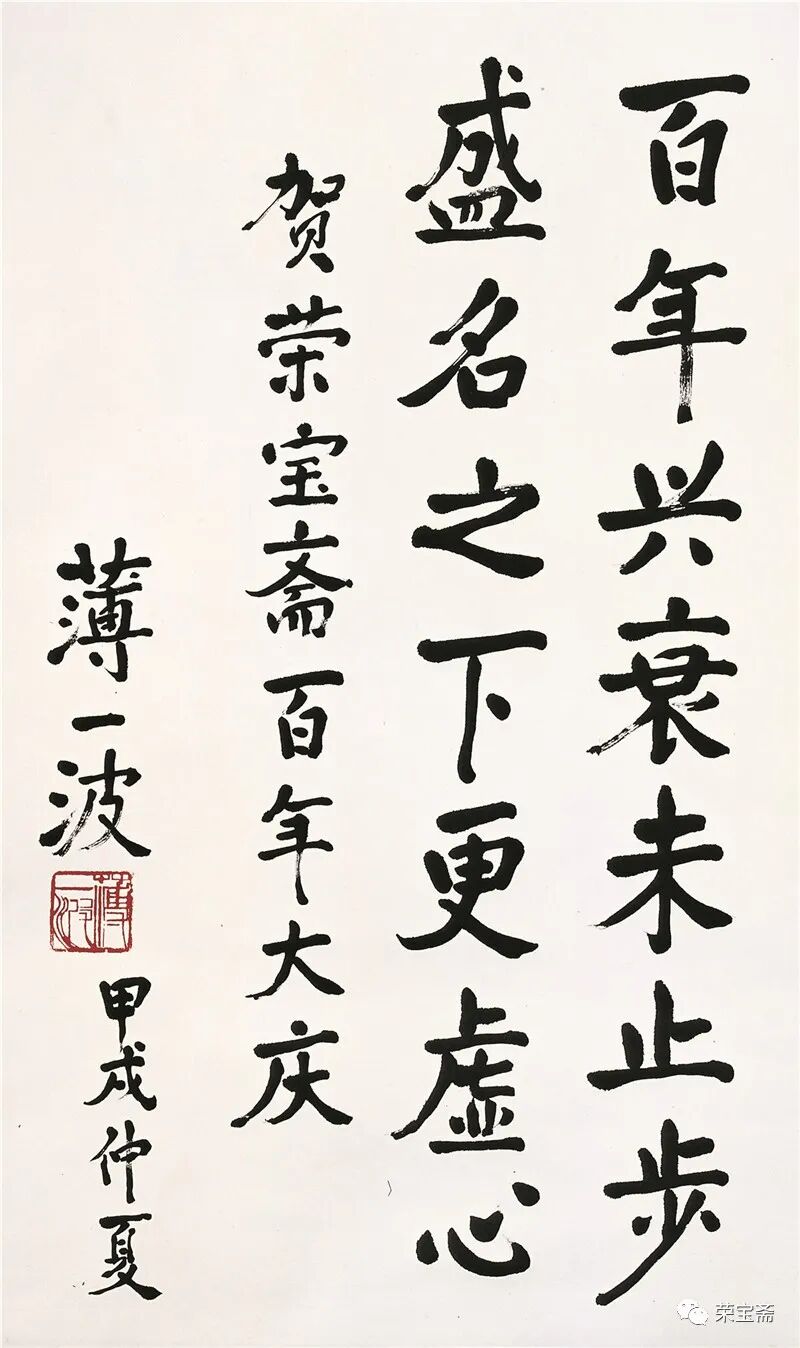 百年兴衰未止步
盛名之下更虚心
贺荣宝斋百年大庆
薄一波
薄一波
甲戌仲夏
荣宝斋